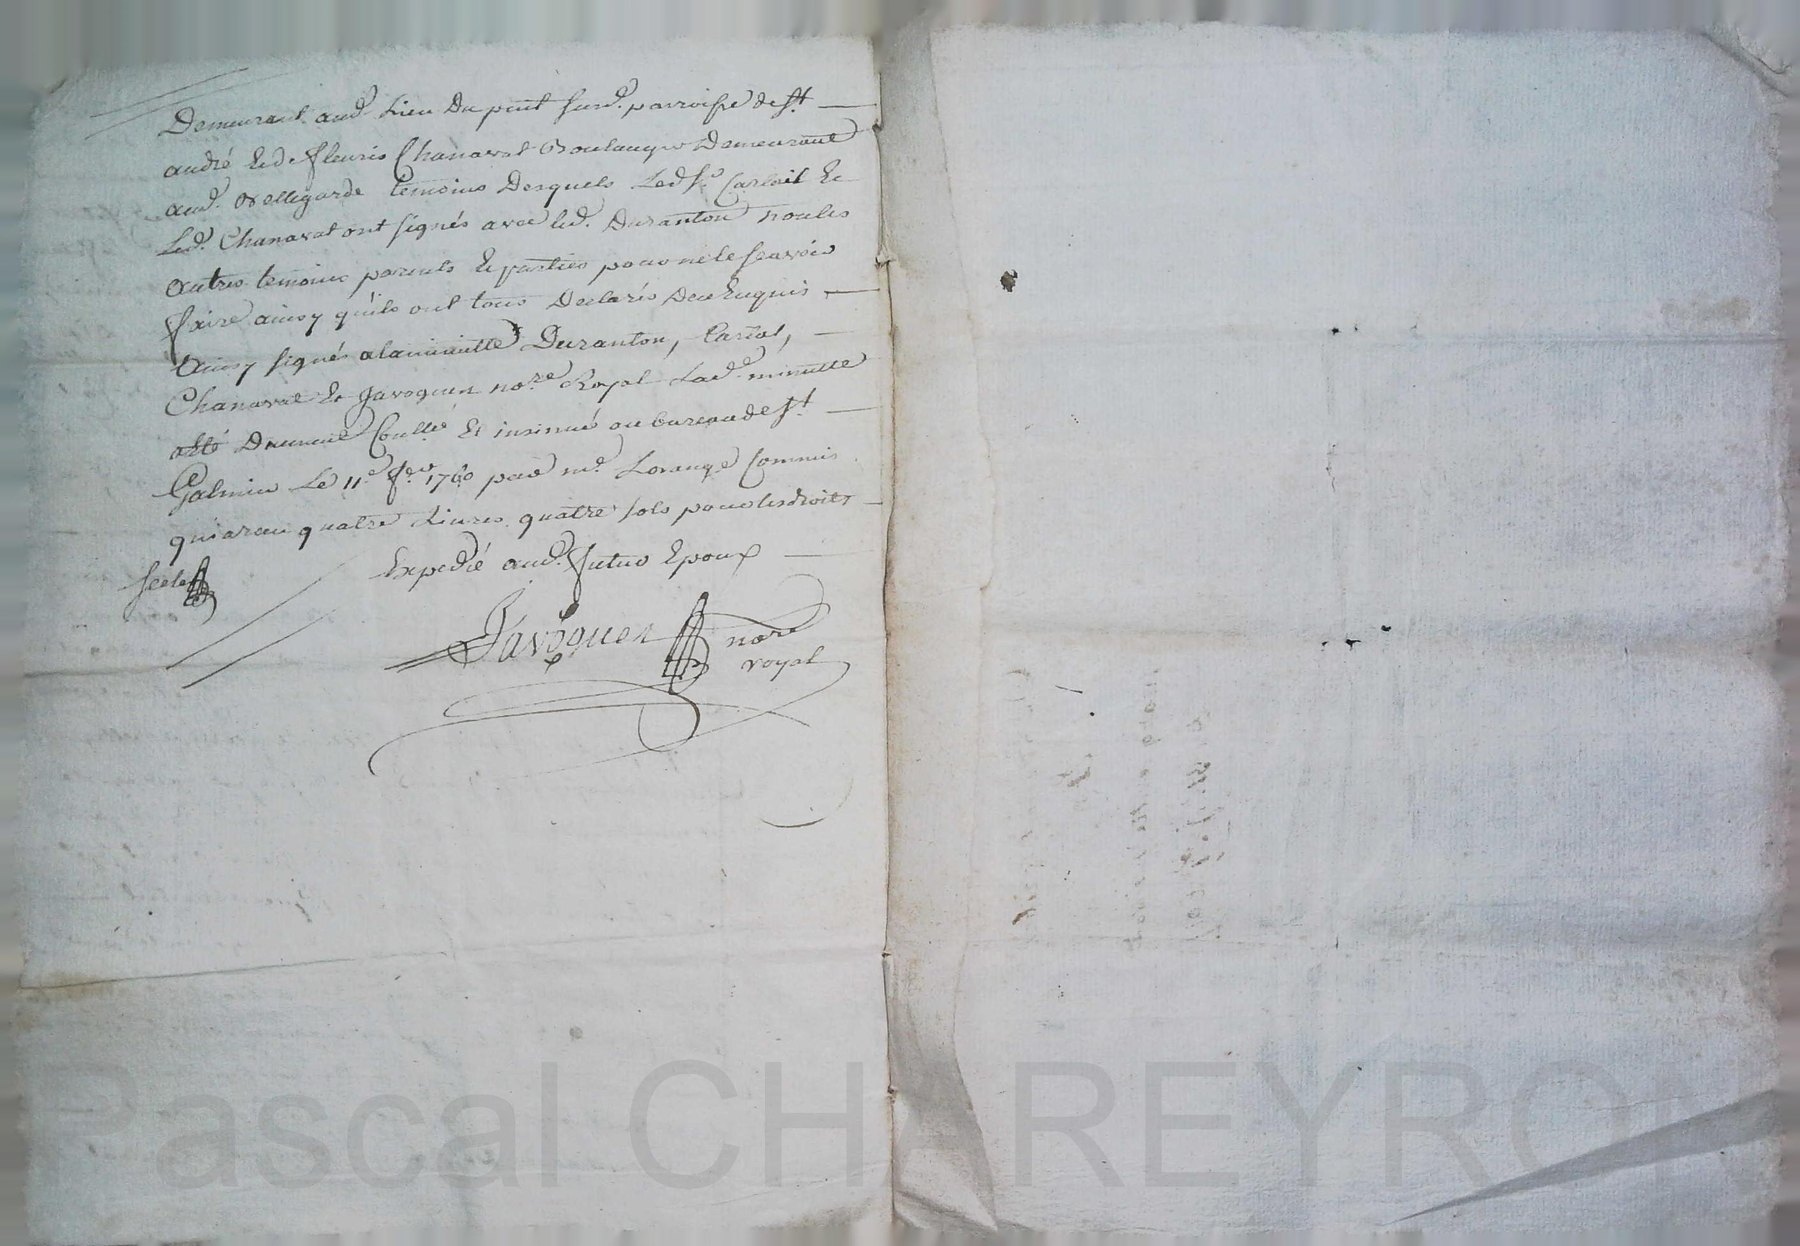 Demeurant aud. Lieu Du pont susd. parroisse de St
andré Et de fleuris Chanavat Boulanger Demeurant
aud. Bellegarde temoins Desquels Led. Sr. Carlat Et
Led. Chanavat ont signés avec led. Duranton non les
autres temoins parents Et parties pour ne le scavoir
faire ainsy quils ont tous Declarés De ce Enquis
Ainsy signés a la minutte Duranton, Carlat,
Chanavat Et Javoguen nore. Royal Lad. minutte
a été Duement Conllé. Et insinué au bureau de St
Galmier Le 11e 1760 par me. Lorange Commis
qui a reçu quatre Livres quatre sols pour les droits
Expedié aud. futur Epoux
scelé
Javoguen nore
royal
Pascal CHAREYRON